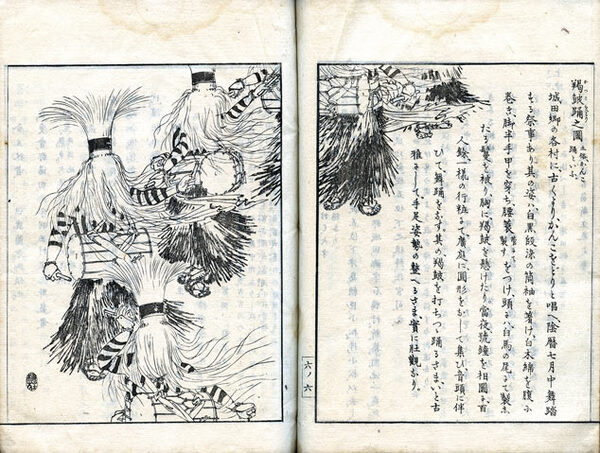 羯皷踊之圖 土俗かんこ踊といふ
城田郷の各村に古くよりかんこをどりと唱へ陰暦七月中舞踏
する祭事あり其の姿ハ白黒段染の筒袖を着け白木綿を腹に
巻き脚半手甲を穿ち腰簑をつけ頭にハ白馬の尾にて製し
たる髪を被り胸に羯皷を懸けたり當夜琉鐘を相圖に百
人餘一樣の行粧にて廣庭に圓形をなして集ひ音頭に伴
ひて舞踊をなす其の羯皷を打ちつゝ踊るさまいと古
雅にして手足姿勢の整へるさま實に壯觀なり
六ノ六